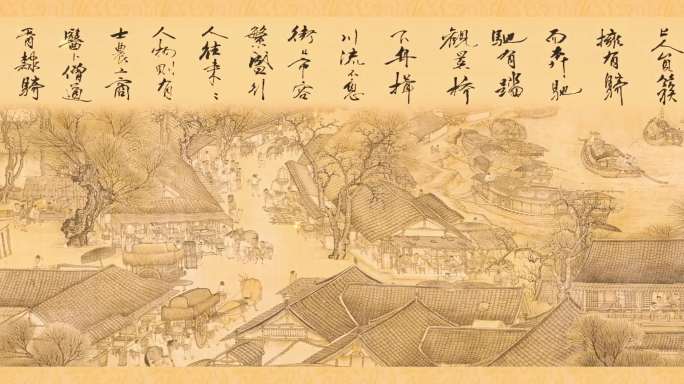 上人員簇
擁有騎
而奔馳
馳有踏
觀景橋
下舟楫
川流不息
街市容
繁盛引
人往來々
人物則有
士農工商
醫卜僧道
胥隸騎